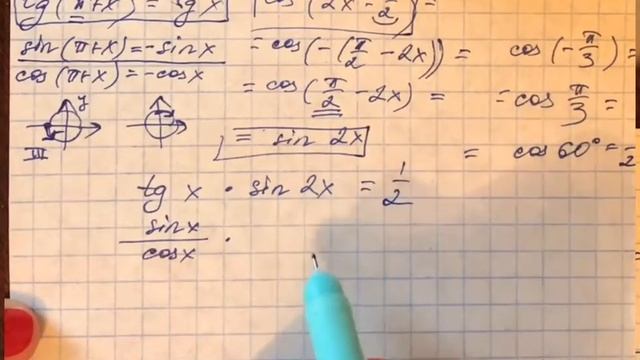 tg(π+x) = tgx
cos(2x - π/2) =
sin(π+x) = -sinx
cos(π+x) = -cosx
= cos(-(π/2 - 2x)) =
= cos(π/2 - 2x) =
= sin 2x
cos(-π/3) =
= cos π/3 =
= cos60° =
y
III
tg x · sin 2x = 1/2
sinx/cosx ·